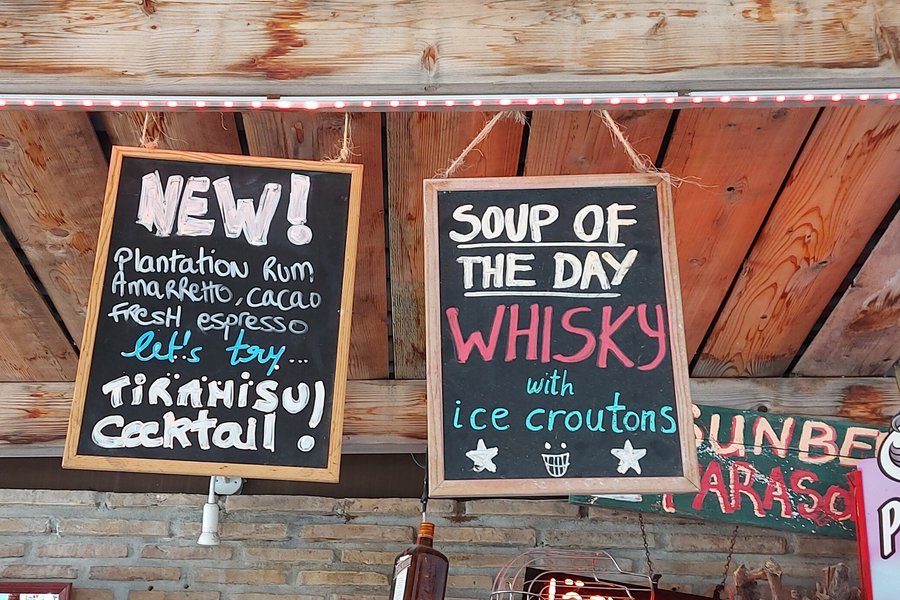 NEW!
Plantation Rum,
Amarretto, cacao
fresh espresso
let's try...
TiRAMiSU!
Cocktail!
SOUP OF
THE DAY
WHISKY
with
ice croutons
SUNBE
PARASO
P